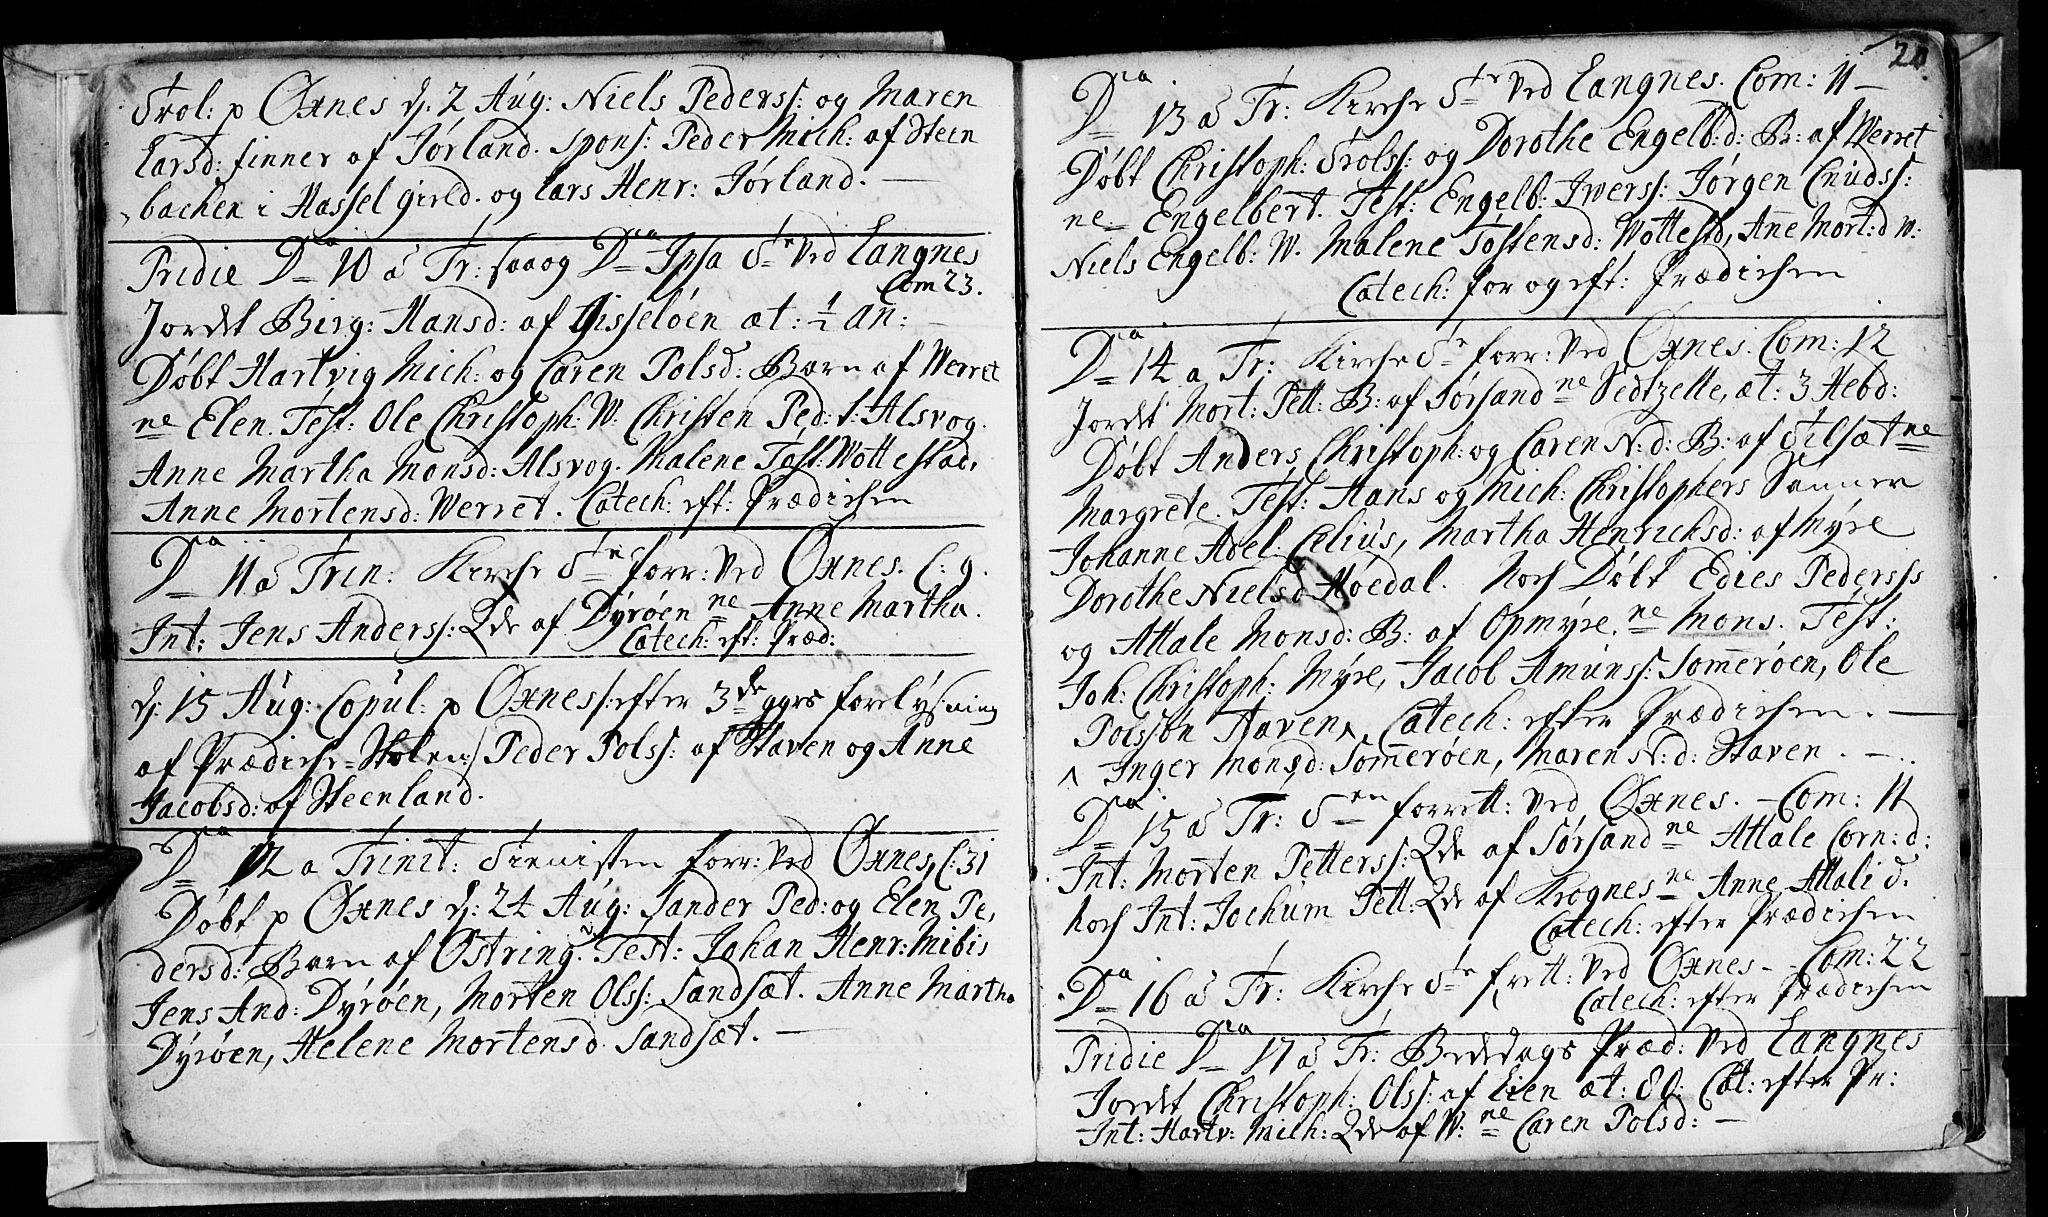 Trol: p Øxnes dj. 2 Aug: Niels Pederss: og Maren
Larsd: finner af Jørland. spons: Peder Mich: af Steen
bachen i Hassel gield. og Lars Henr: Jørland. —
Pridie Dca 10 a Tr: saa og Dca Ipsa Tte ved Langnes
Com 23.
Jordet Birg: Hansd: af Gisseløen æt: ½ An: —
Døbt Hartvig Mich: og Caren Polsd: Barn af Werret
ne Elen. Test: Ole Christoph: W. Christen Ped: s: Alsvog.
Anne Martha Monsd: Alsvog. Malene Tøst: Wottestad,
Anne Mortensd: Werret. Catech: eft: Prædichen
Dca 11 a Trin: Kirche Tten forr: ved Øxnes. C: 9.
Int: Jens Anderss: Qde af Dyrøen ne Anne Martha.
Catech: eft: Præd:
dj. 15 Aug: Copul: p Øxnes /: efter 3de ggrs forelysning
af Prædiche-Stolen :/ Peder Polss: af Staven og Anne
Jacobsd: af Steenland.
Dca 12 a Trinit: Tienisten forr: ved Øxnes, C: 31
Døbt p Øxnes dj: 24 Aug: Sander Ped: og Elen Pe,
dersd: Barn af Østring. Test: Johan Henr: Mibis
Jens And: Dyrøen, Morten Olss: Sandsæt. Anne Martha
Dyrøen, Helene Mortensd. Sandsæt. —
20.
Dca 13 a Tr: Kirche Tte ved Langnes. Com: 11 —
Døbt Christoph: Trolss: og Dorothe Engelb: d: B: af Werret
ne Engelbert. Test: Engelb: Iwerss: Jørgen Cnudss:
Niels Engelb: W. Malene Tøstensd: Wottestd, Anne Mort: d W:
Catech: for og eft: Prædichen
Dca 14 a Tr: Kirche Tte forr: ved Øxnes. Com: 12
Jordet Mort: Pett: B: af Sørsand ne Sedtzelle, æt: 3 Hebd:
Døbt Anders Christoph: og Caren N: d: B: af Tilsæt ne
Margrete. Test: Hans og Mich: Christophers Sønner
Johanne Abel. Celius, Martha Henrichsd: af Myre
Dorothe Nielsd Høedal. Noch Døbt Edies Pederss
og Attale Monsd: B: af Opmyre, ne Mons. Test:
Joh: Christoph: Myre, Jacob Amunss: Sommerøen, Ole
Polssøn Haven, ^ Catech: efter Prædichen. —
^ Inger Monsd: Sommerøen, Maren N: d: Staven. —
Dca 15 a Tr: Ten forrett: ved Øxnes. — Com: 11
Int: Morten Petterss: Qde af Sørsand ne Attale Corn: d:
Noch Int: Jochum Pett: Qde af Krognes ne Anne Attali d.
Catech: efter Prædichen
Dca 16 a Tr: Kirche Tte frett: ved Øxnes — Com: 22
Catech: efter Prædichen
Pridie Dca 17 a Tr: Bededags Præd: ved Langnes
Jordet Christoph: Olss: af Eien æt: 80: Cat: efter Pr:
Int: Hartv: Mich: Qde af W: ne Caren Polsd: —